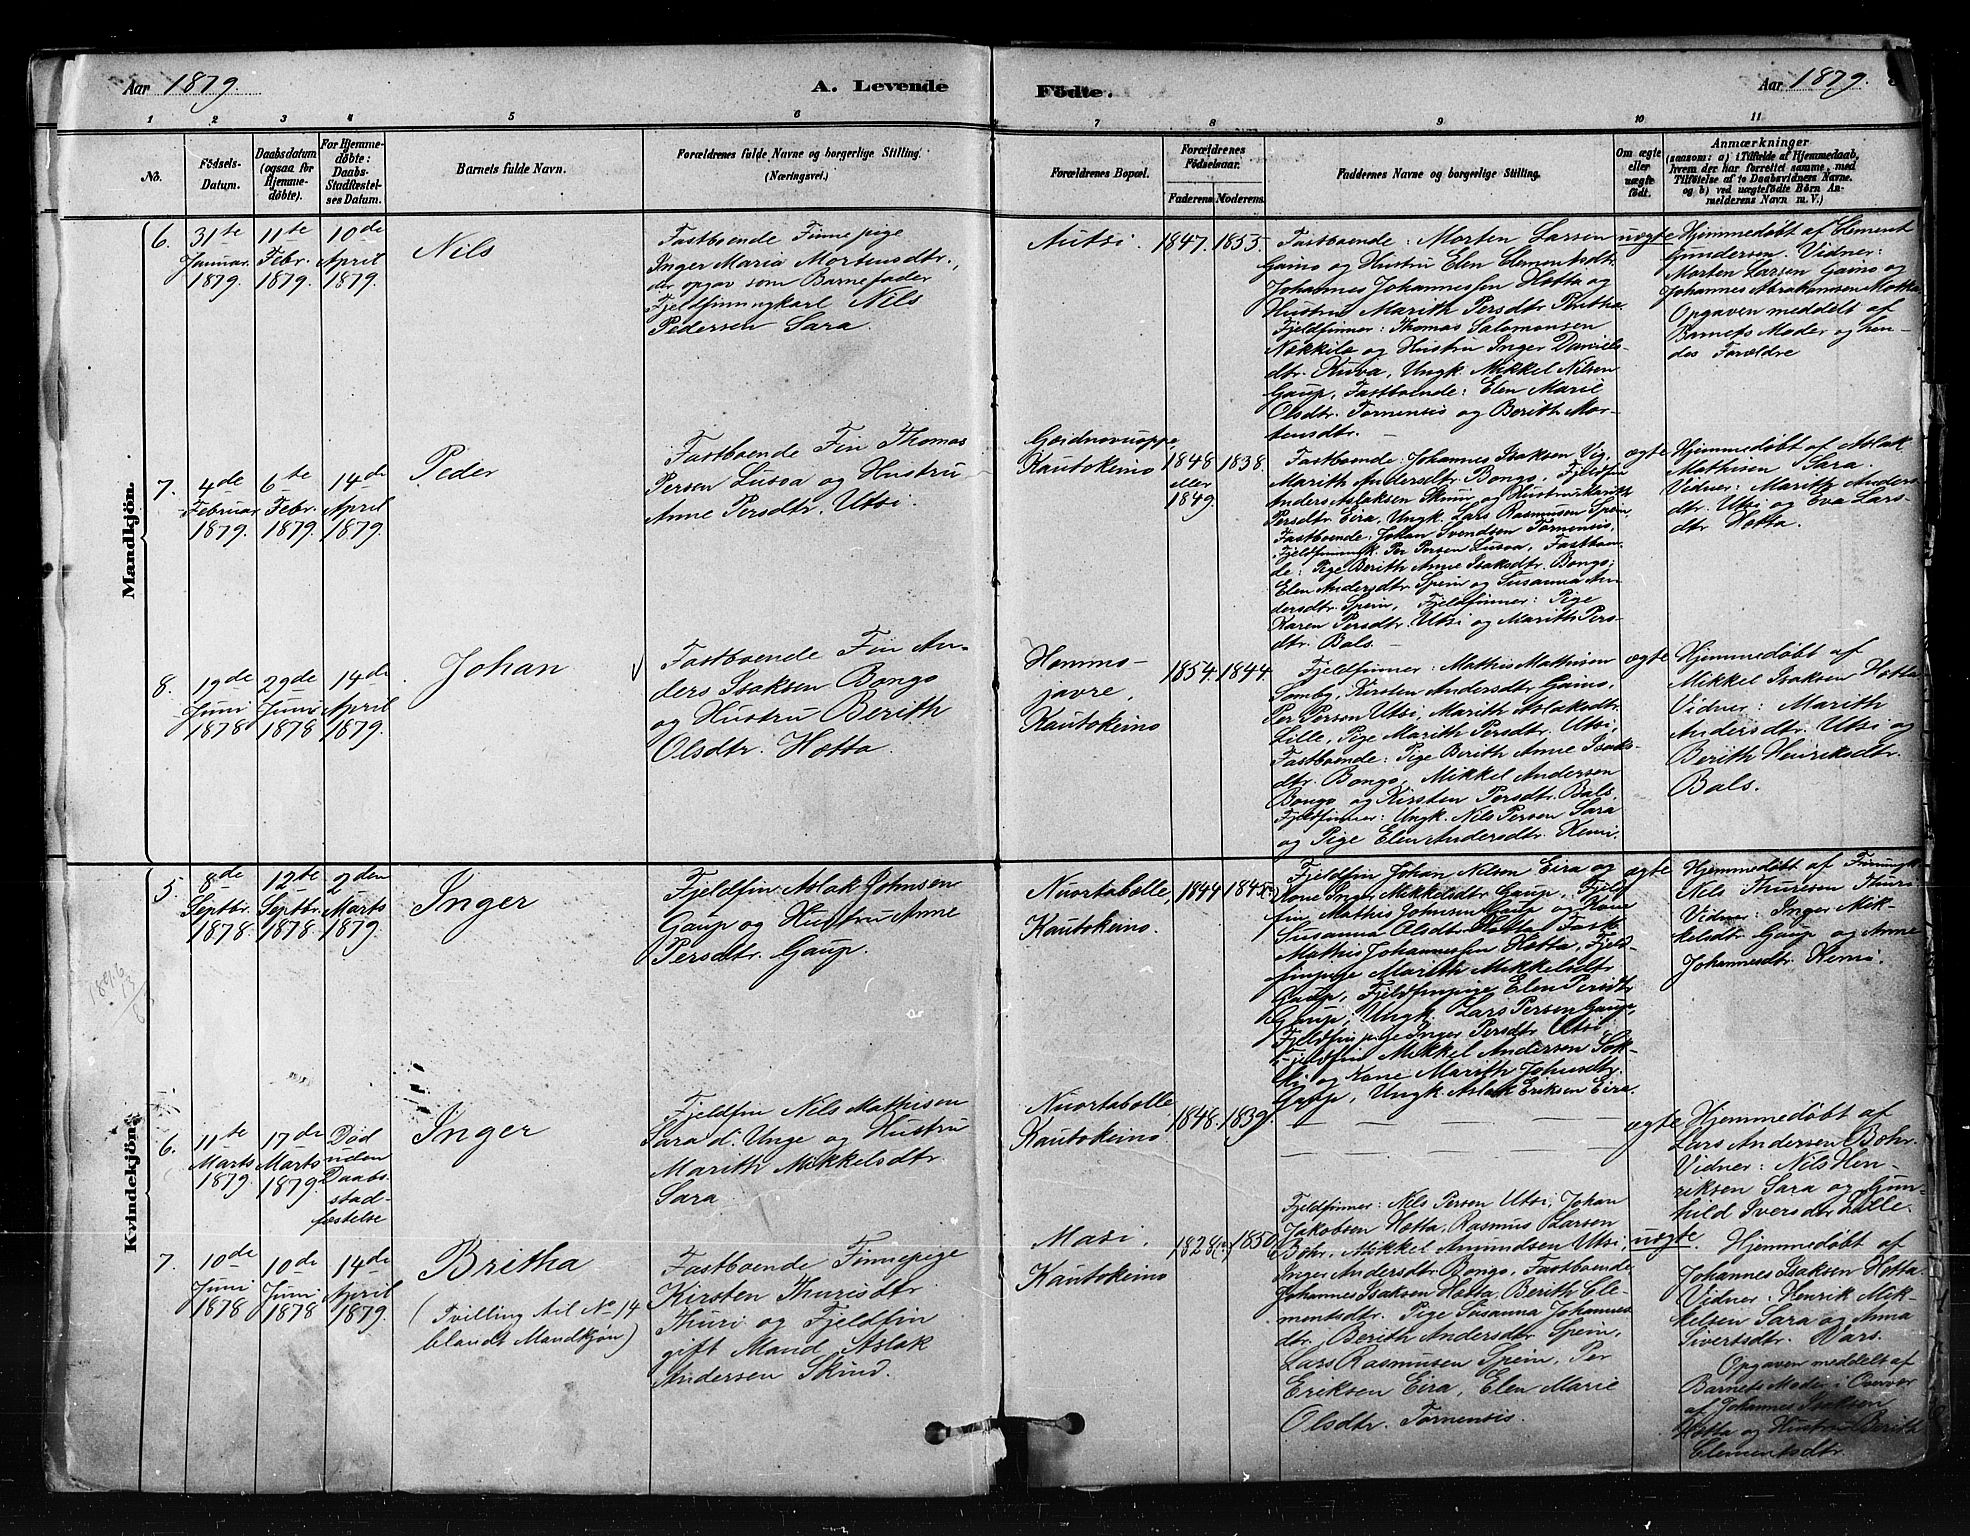 Aar 1879. A. Levende
Födte. Aar 1879.
1 2 3 4 5 6 7 8 9 10 11
No.
Födsels-
Datum.
Daabsdatum
(ogsaa for
Hjemme-
døbte).
For Hjemme-
døbte:
Daabs-
Stadfæstel-
ses Datum.
Barnets fulde Navn.
Forældrenes fulde Navne og borgerlige Stilling.
(Næringsvei.)
Forældrenes Bopæl.
Forældrenes
Födselsaar.
Faderens
Moderens
Faddernes Navne og borgerlige Stilling.
Om ægte
eller
uægte
födt.
Anmærkninger
(saasom: a) i Tilfælde af Hjemmedaab,
hvem der har forrettet samme, med
Tilføielse af to Daabsvidners Navne.
og b) ved uægtefödte Börn An-
melderens Navn m. V.)
Mandkjön.
6.
31te
Januar
1879.
11te
Febr.
1879.
10de
April
1879.
Nils
Fastboende Finnepige
Inger Maria Mortensdtr.,
der opgav som Barnefader
Fjeldfinungkarl Nils
Pedersen Sara.
Autsi.
1847.
1855.
Fastboende: Morten Larsen
Gaino og Hustru Elen Clementsdtr.
Johannes Johannessen Hætta og
Hustru Marith Persdtr. Pentha
Fjeldfinner: Thomas Salomonsen
Nækkila og Hustru Inger Daniels-
dtr. Kuva, Ungk. Mikkel Nilsen
Gaup, Fastboende: Elen Marie
Olsdtr. Tornensis og Berith Mor-
tensdtr. —
uægte
Hjemmedøbt af Clement
Gundersen. Vidner:
Morten Larsen Gaino og
Johannes Abrahamsen Hætta
Opgaven meddelt af
Barnets Moder og hen-
des Forældre
7.
4de
Februar
1879.
6te
Febr.
1879.
14de
April
1879.
Peder
Fastboende Fin Thomas
Persen Lusoa og Hustru
Anne Persdtr. Utsi.
Goidnovuoppe
Kautokeino
1848
eller
1849.
1838.
Fastboende: Johannes Isaksen Vig,
Marith Andersdtr. Bongo, Fjeldfin
Anders Aslaksen Skum og Hustru Marith
Persdtr. Eira, Ungk. Lars Rasmusen Spein,
Fastboende: Johan Svendsen Tornensis,
Fjeldfinungk. Per Persen Lusoa, Fastboen-
de: Pige Berith Anne Isaksdtr. Bongo;
Elen Andersdtr. Spein og Susanna An-
dersdtr. Spein, Fjeldfinner: Pige
Karen Persdtr. Utsi og Marith Pers-
dtr. Bals.
ægte
Hjemmedøbt af Aslak
Mathisen Sara.
Vidner: Marith Anders-
dtr. Utsi og Eva Lars-
dtr Hætta.
8.
19de
Juni
1878
29de
Juni
1878
14de
April
1879.
Johan
Fastboende Fin An-
ders Isaksen Bongo
og Hustru Berith
Olsdtr. Hætta.
javre,
Kautokeino
1854.
1844.
Fjeldfinner: Mathis Mathisen
Somby, Kirsten Andersdtr. Gaino,
Per Persen Utsi, Marith Aslaksdtr.
Lille, Pige Marith Persdtr. Utsi,
Fastboende: Pige Berith Anne Isaks-
dtr. Bongo, Mikkel Andersen
Bongo og Kirsten Persdtr. Bals.
Fjeldfinner: Ungk. Nils Persen Sara
og Pige Elen Andersdtr. Kemi.
ægte
Hjemmedøbt af
Mikkel Isaksen Hætta
Vidner: Marith
Andersdtr. Utsi og
Berith Henriksdtr.
Bals.
Kvindekjön.
5.
8de
Septbr.
1878.
12te
Septbr.
1878
2den
Marts
1879.
Inger
Fjeldfin Aslak Johnsen
Gaup og Hustru Anne
Persdtr. Gaup.
Nuortabelle,
Kautokeino.
1844
1845
Fjeldfin Johan Nilsen Eira og
Kone Inger Mikkelsdtr Gaup, Fjeld
fin Mathis Johnsen Gaup og Kone
Susanna Olsdtr. Hætta, Fastb.
Mathis Johannessen Hætta, Fjeld-
finpige Marith Mikkelsdtr
Gaup, Fjeldfinpige Elen Persdtr
Gaup, Ungk. Lars Persen Gaup,
Fjeldfinpige Inger Persdtr. Utsi
Fjeldfin Mikkel Andersen Sok-
ki og Kone Marith Johnsdtr.
Gaup, Ungk. Aslak Eriksen Eira.
ægte
Hjemmedøbt af Finungk.
Nils Thuresen Thuri
Vidner: Inger Mik-
kelsdtr. Gaup og Anne
Johannesdtr. Kemi.
6.
11te
Marts
1879.
17de
Marts
1879.
Død
uden
Daabs-
stad-
fæstelse
Inger
Fjeldfin Nils Mathisen
Sara d. Unge og Hustru
Marith Mikkelsdtr.
Sara.
Nuortabelle
Kautokeino.
1848.
1839.
— — — — —
— — — — —
ægte
Hjemmedøbt af
Lars Andersen Bohr.
Vidner: Nils Hen-
riksen Sara og Gun-
hild Iversdtr. Lille.
7.
10de
Juni
1878
10de
Juni
1878
14de
April
1879.
Britha
(Tvilling til No 14
blandt Mandkjøn)
Fastboende Finnepige
Kirsten Thurisdtr
Thuri og Fjeldfin
gift Mand Aslak
Andersen Skind.
Masi.
Kautokeino
1828(?)
1850.
Fjeldfinner: Nils Persen Utsi, Johan
Jakobsen Hætta, Rasmus Larsen
Bohr, Mikkel Amundsen Utsi,
Inger Andersdtr. Bongo, Fastboende
Johannes Isaksen Hætta, Berith Cle-
mentsdtr. Pige Susanna Johannes-
dtr, Berith Andersdtr. Spein,
Lars Rasmusen Spein, Per
Eriksen Eira, Elen Marie
Olsdtr. Tornensis.
uægte
Hjemmedøbt af
Johannes Isaksen Hætta.
Vidner: Henrik Mik-
kelsen Sara og Anna
Sivertsdtr. Vars.
Opgaven meddelt af
Barnets Moder i Overvær
af Johannes Isaksen
Hætta og Hustru Berith
Clementsdtr